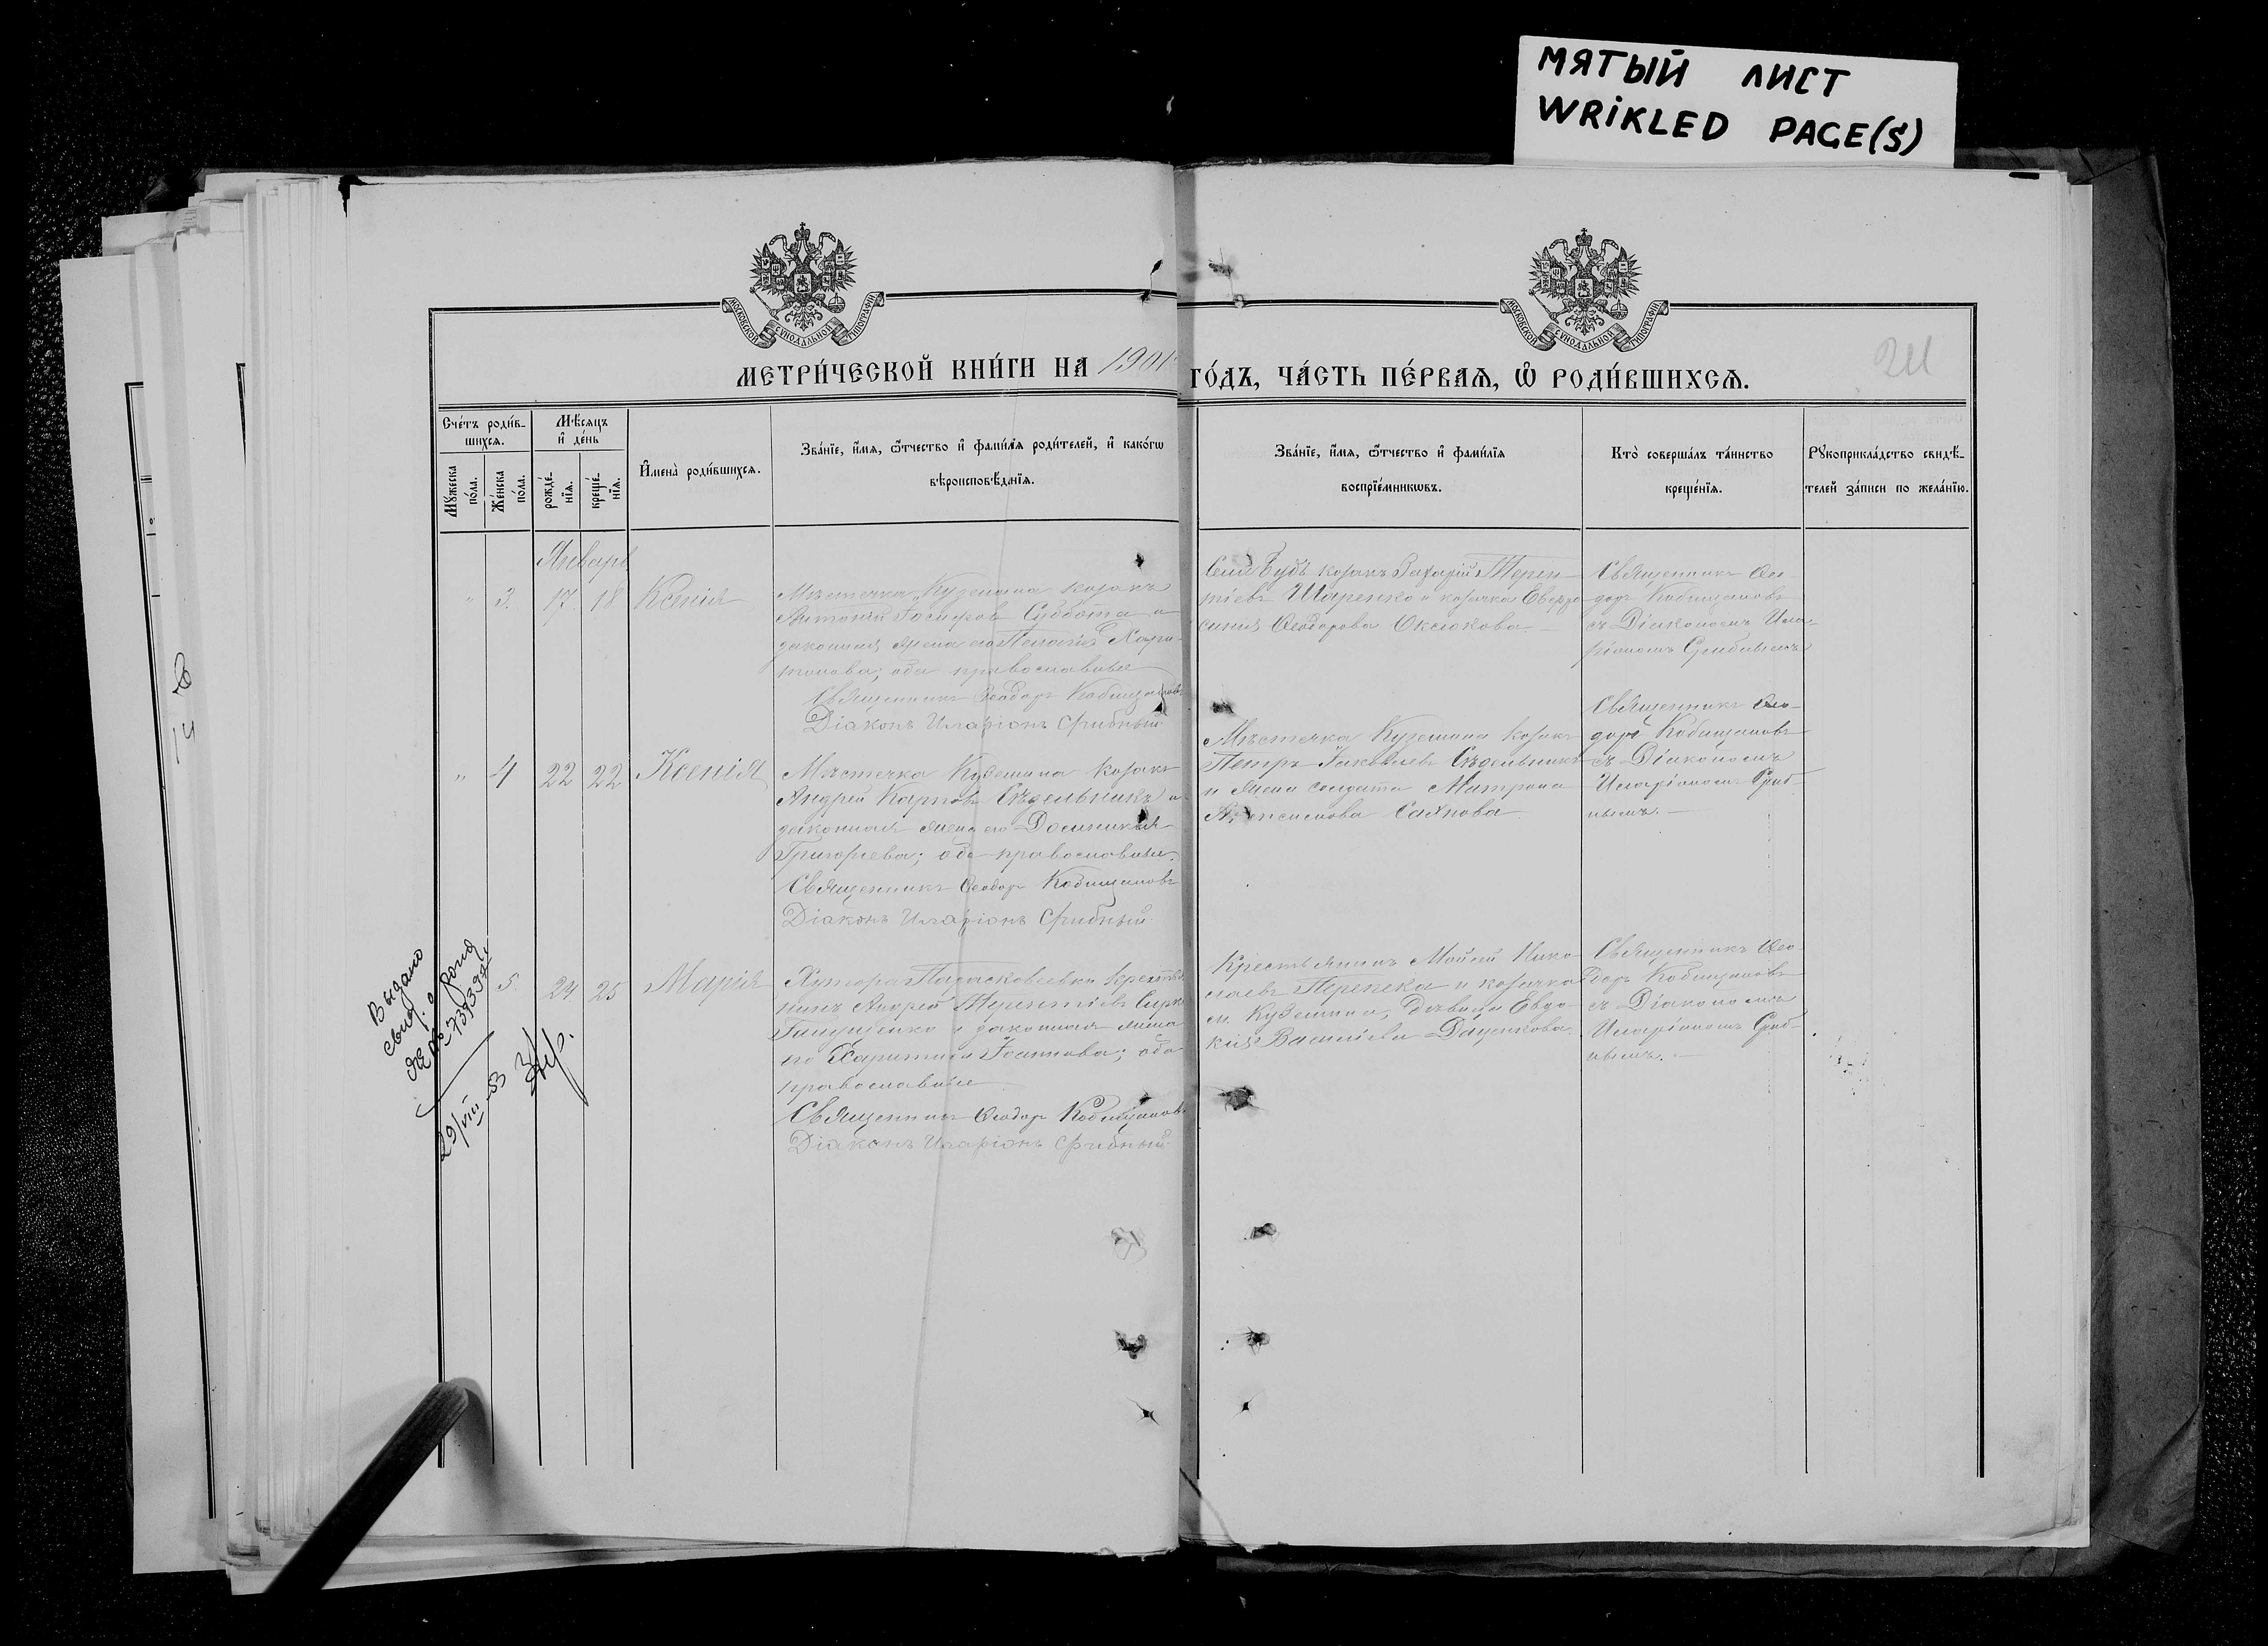 МЯТЫЙ ЛИСТ
WRiKLED PAGE(S)
МОСКОВСКОЙ СѴНОДАЛЬНОЙ ТИПОГРАФІИ
МОСКОВСКОЙ СѴНОДАЛЬНОЙ ТИПОГРАФІИ
МЕТРИ́ЧЕСКОЙ КНИ́ГИ НА 1901 ГО́ДЪ, ЧА́СТЬ ПЕ́РВАѦ, Ѽ РОДИ́ВШИХСѦ.
Сче́тъ роди́в-
шихсѧ.
Мꙋжеска
по́ла.
Же́нска
по́ла.
Мѣ́сѧцъ
и҆ де́нь
рожде́-
нїѧ.
креще́-
нїѧ.
И҆мена̀ роди́вшихсѧ.
Зва́нїе, и҆́мѧ, ѻ҆́тчество и҆ фами́лїѧ роди́телей, и҆ како́гѡ
вѣроисповѣ́данїѧ.
Зва́нїе, и҆́мѧ, ѻ҆́тчество и҆ фами́лїѧ
воспрїе́мникѡвъ.
Кто̀ соверша́лъ та́инство
креще́нїѧ.
Рꙋкоприкла́дство свидѣ́-
телей за́писи по жела́нїю.
Январь
" 3. 17 18 Ксенія
Мѣстечка Куземина козакъ
Антоній Іосифовъ Суббота и
законная жена его Пелагія Хари-
тонова; оба православные
Священникъ Ѳеодоръ Кобищановъ
Діаконъ Иларіонъ Грибный
Села Будъ козакъ Захарій Терен-
тіевъ Шаренко и козачка Евфро-
синія Ѳеодорова
Священникъ Ѳео-
доръ Кобищановъ
съ Діакономъ Ила-
ріономъ Грибнымъ
" 4 22 22 Ксенія
Мѣстечка Куземина козакъ
Андрей Карповъ Сѣдельникъ и
законная жена его Домникія
Григорьева; оба православные.
Священникъ Ѳеодоръ Кобищановъ
Діаконъ Иларіонъ Грибный
Мѣстечка Куземина козакъ
Петръ Іаковлевъ Сѣдельникъ
и жена солдата Матрона
Священникъ Ѳео-
доръ Кобищановъ
съ Діакономъ
Иларіономъ Гриб-
нымъ.
5. 24 25 Марія
Хутора Парасковеевки крестья-
нинъ Андрей Терентіевъ
и законная жена
его Харитина Іоаннова; оба
православные
Священникъ Ѳеодоръ Кобищановъ
Діаконъ Иларіонъ Грибный
Крестьянинъ Мойсей Нико-
лаевъ Перепека и козачка
м. Куземина, дѣвица Евдо-
кія Васильева Даценкова
Священникъ Ѳео-
доръ Кобищановъ
съ Діакономъ
Иларіономъ Гриб-
нымъ.
Выдано
свид. о
29/VIII-53